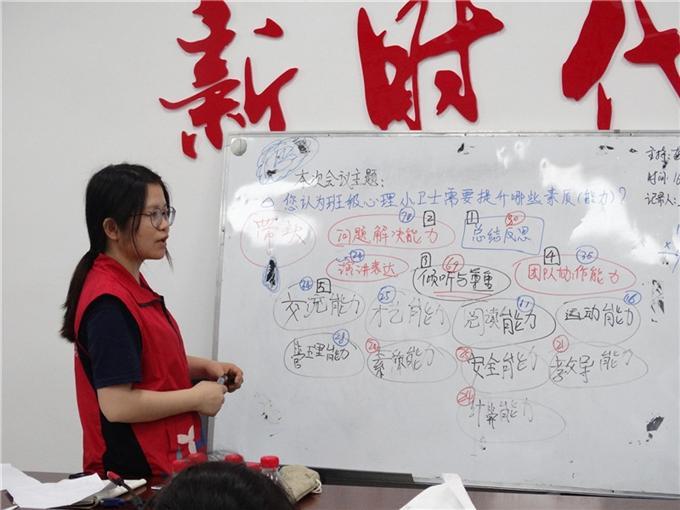 新时代
主持:
本次会议主题:
时间:
您认为班级心理小卫士需要提升哪些素质(能力)?
记录人:
问题解决能力 78 2 总结反思 1 90
演讲表达 倾听与尊重 3 67 团队协作能力 4 36
交流能力 5 才艺能力 25 阅读能力 17 运动能力 16
管理能力 安全能力 教导能力 21
计算能力 24